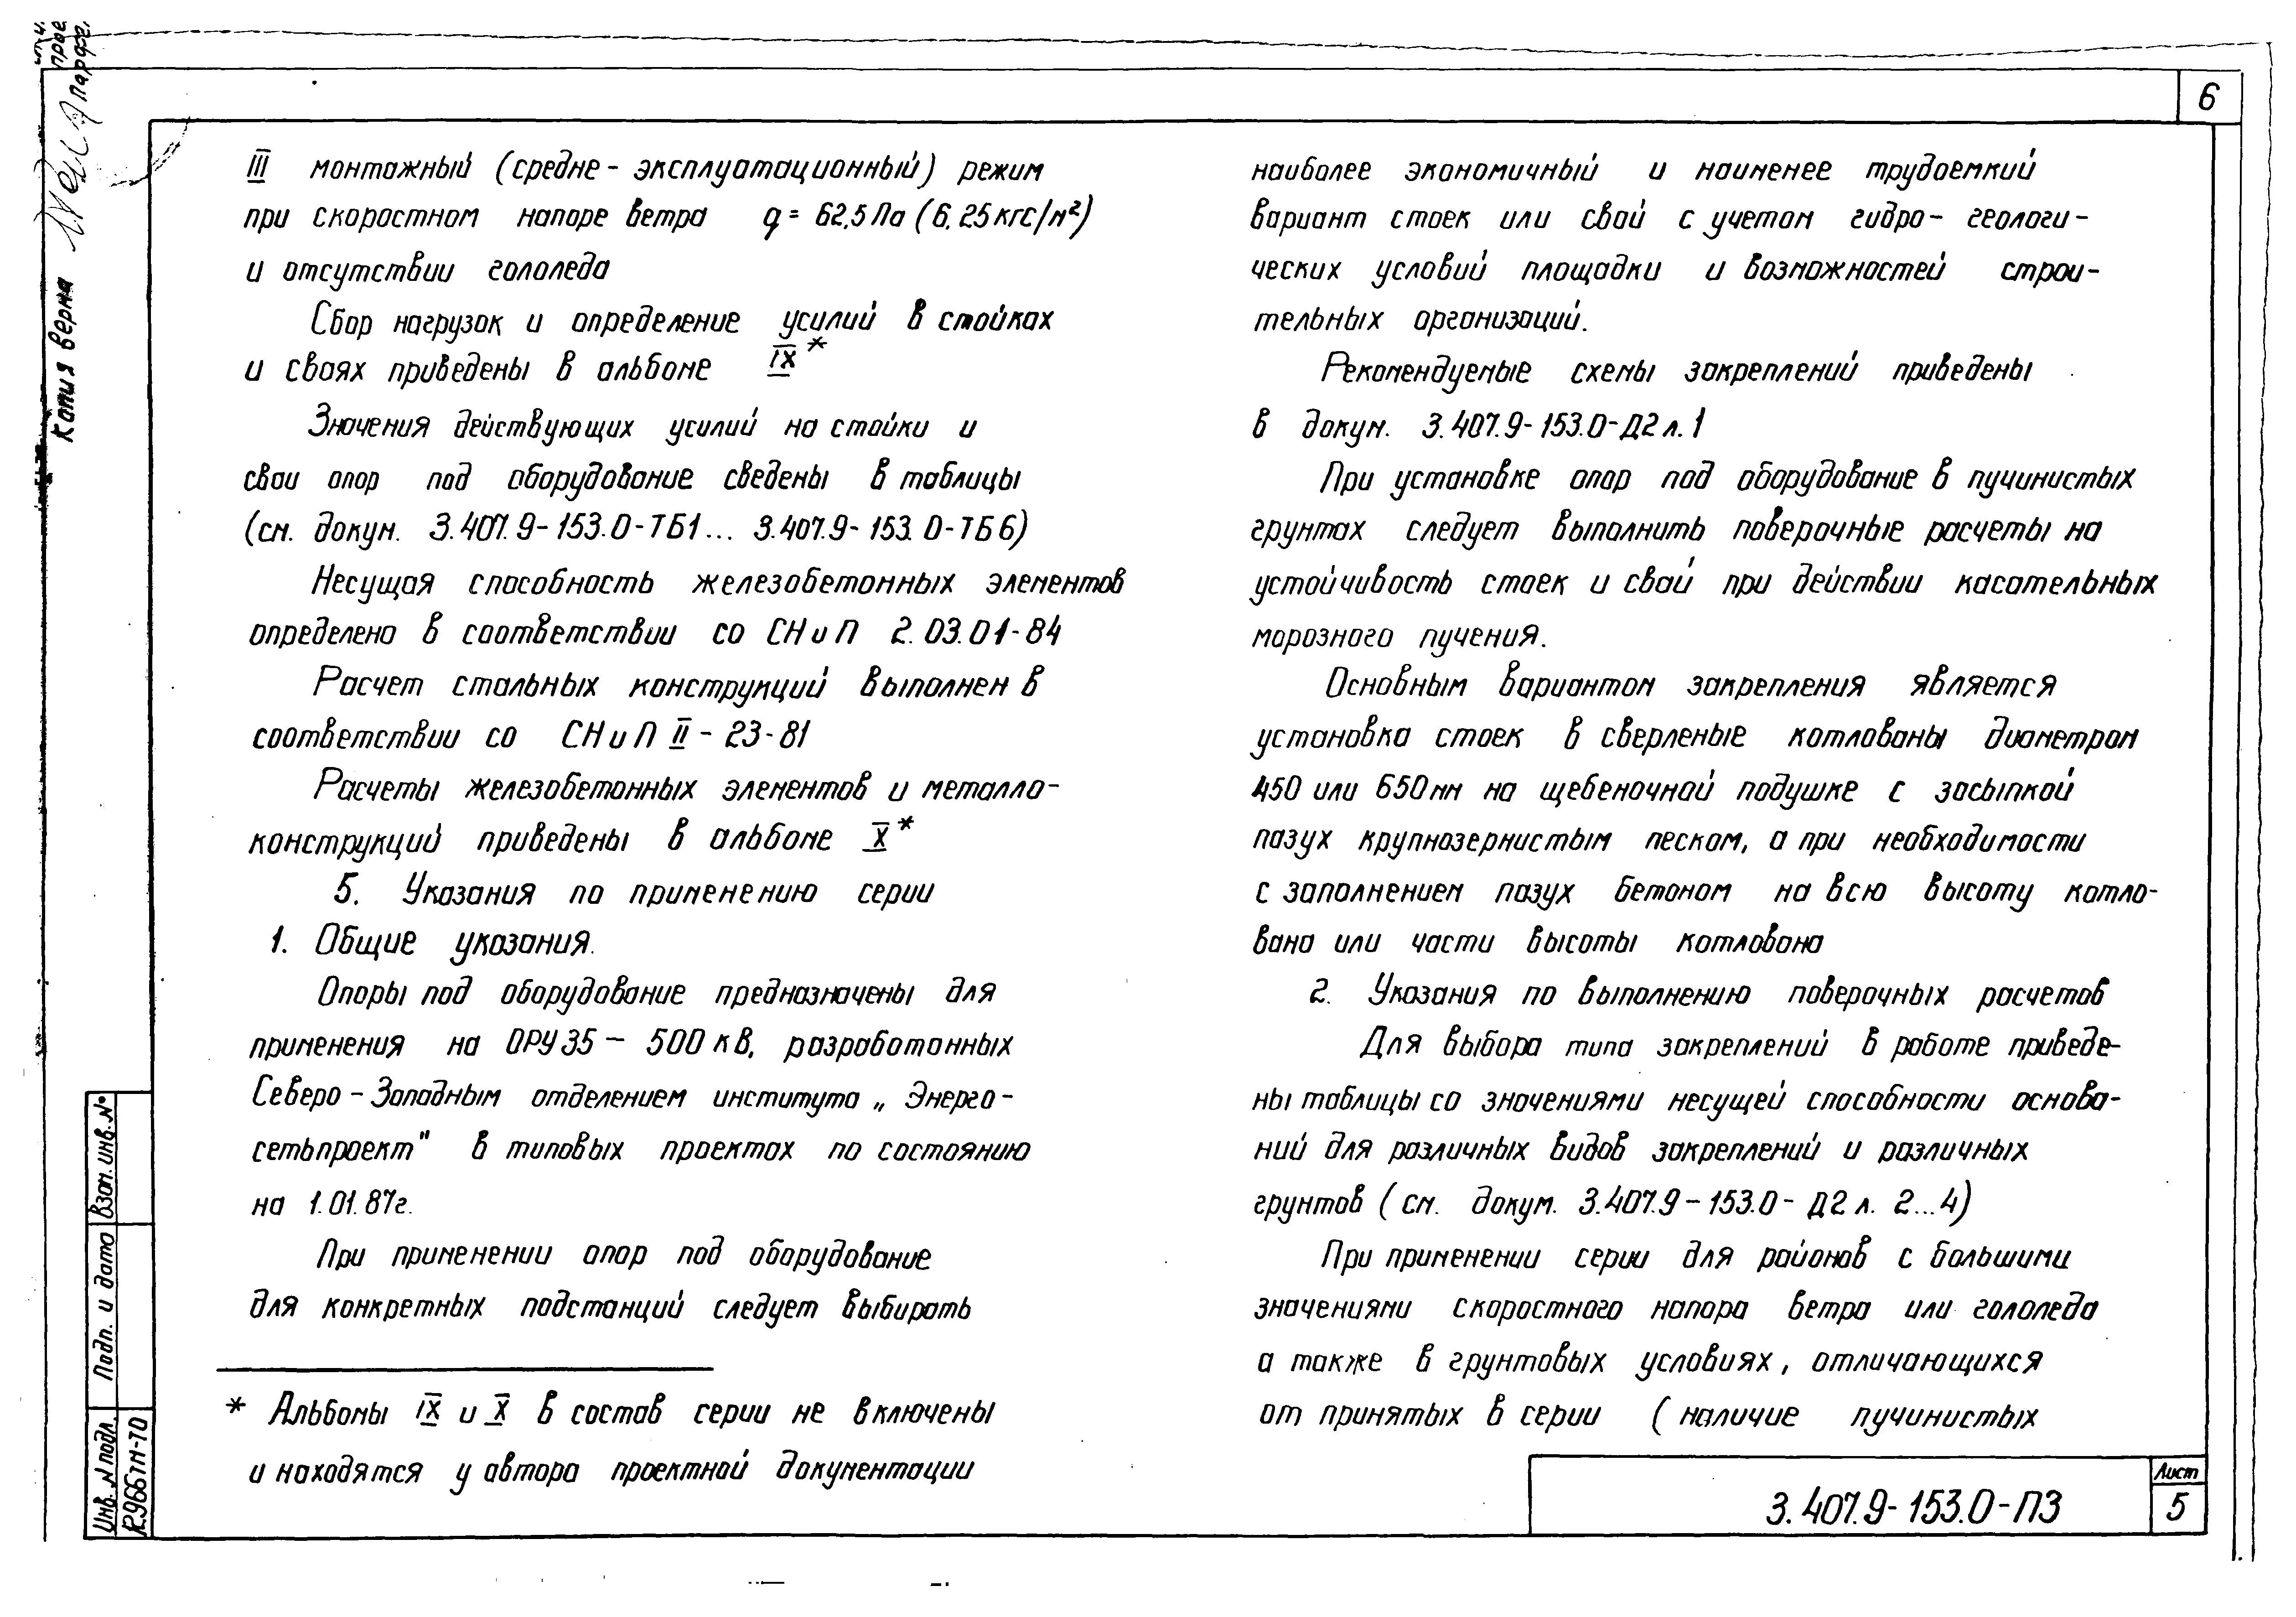 6
III монтажный (средне-эксплуатационный) режим
при скоростном напоре ветра q = 62,5 Па (6,25 кгс/м²)
и отсутствии гололеда
Сбор нагрузок и определение усилий в стойках
и сваях приведены в альбоме IX*
Значения действующих усилий на стойки и
сваи опор под оборудование сведены в таблицы
(см. докум. 3.407.9-153.0-ТБ1... 3.407.9-153.0-ТБ6)
Несущая способность железобетонных элементов
определена в соответствии со СНиП 2.03.01-84
Расчет стальных конструкций выполнен в
соответствии со СНиП II-23-81
Расчеты железобетонных элементов и металло-
конструкций приведены в альбоме X*
5. Указания по применению серии
1. Общие указания.
Опоры под оборудование предназначены для
применения на ОРУ 35 - 500 кВ, разработанных
Северо-Западным отделением института „Энерго-
сетьпроект" в типовых проектах по состоянию
на 1.01.87г.
При применении опор под оборудование
для конкретных подстанций следует выбирать
* Альбомы IX и X в состав серии не включены
и находятся у автора проектной документации
наиболее экономичный и наименее трудоемкий
вариант стоек или свай с учетом гидро-геологи-
ческих условий площадки и возможностей строи-
тельных организаций.
Рекомендуемые схемы закреплений приведены
в докум. 3.407.9-153.0-Д2 л.1
При установке опор под оборудование в пучинистых
грунтах следует выполнить поверочные расчеты на
устойчивость стоек и свай при действии касательных
морозного пучения.
Основным вариантом закрепления является
установка стоек в сверленые котлованы диаметром
450 или 650мм на щебеночной подушке с засыпкой
пазух крупнозернистым песком, а при необходимости
с заполнением пазух бетоном на всю высоту котло-
вана или части высоты котлована
2. Указания по выполнению поверочных расчетов
Для выбора типа закреплений в работе приведе-
ны таблицы со значениями несущей способности основа-
ний для различных видов закреплений и различных
грунтов (см. докум. 3.407.9-153.0-Д2 л. 2...4)
При применении серии для районов с большими
значениями скоростного напора ветра или гололеда
а также в грунтовых условиях, отличающихся
от принятых в серии (наличие пучинистых
3.407.9-153.0-ПЗ
Лист
5
Копия верна
Взам. инв. №
Подп. и дата
Инв. № подл.